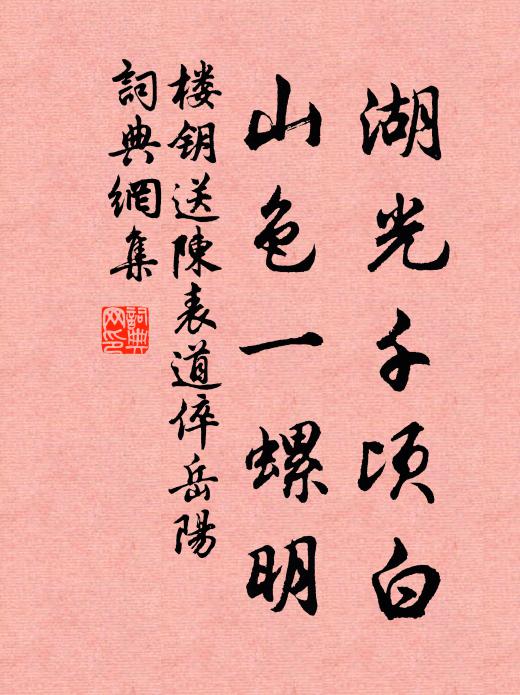 湖光千顷白
山色一螺明
楼钥送陳表道倅岳陽
詞典網集
詞典网印